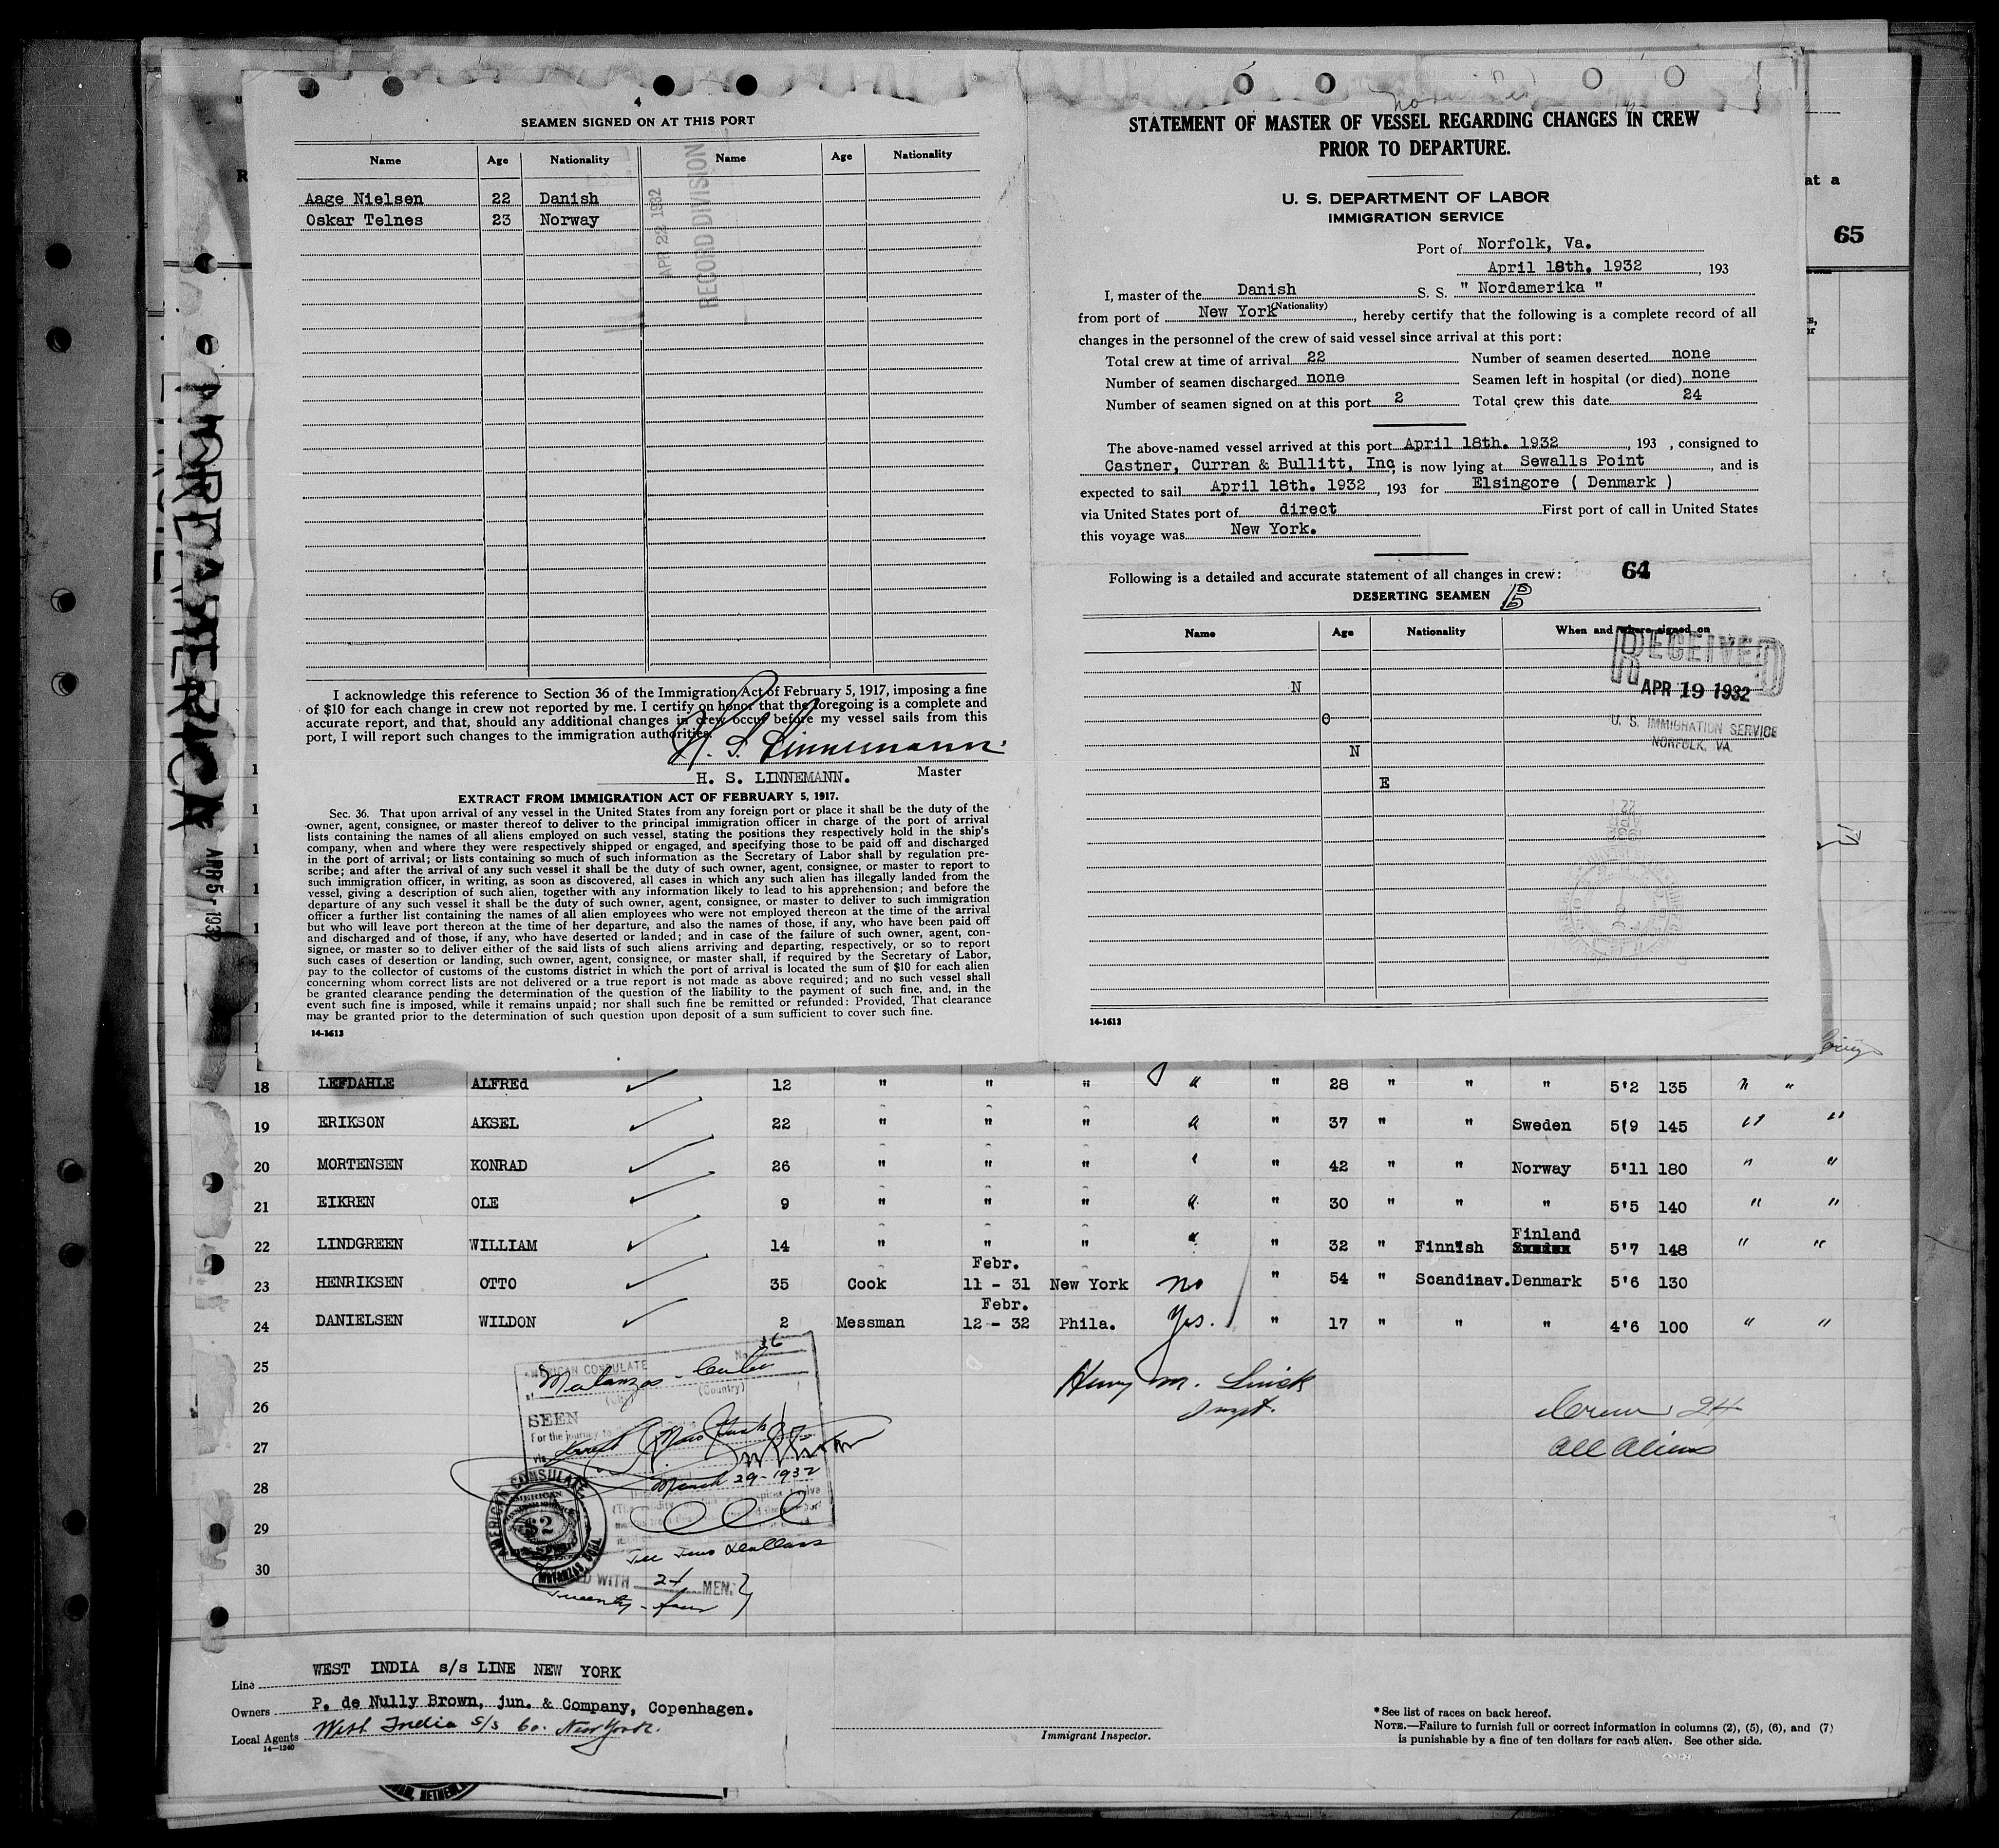 4
SEAMEN SIGNED ON AT THIS PORT
Name Age Nationality Name Age Nationality
Aage Nielsen 22 Danish
Oskar Telnes 23 Norway
APR 22 1932
RECORD DIVISION
I acknowledge this reference to Section 36 of the Immigration Act of February 5, 1917, imposing a fine
of $10 for each change in crew not reported by me. I certify on honor that the foregoing is a complete and
accurate report, and that, should any additional changes in crew occur before my vessel sails from this
port, I will report such changes to the immigration authorities.
H. S. Linnemann.
H. S. LINNEMANN. Master
EXTRACT FROM IMMIGRATION ACT OF FEBRUARY 5, 1917.
Sec. 36. That upon arrival of any vessel in the United States from any foreign port or place it shall be the duty of the
owner, agent, consignee, or master thereof to deliver to the principal immigration officer in charge of the port of arrival
lists containing the names of all aliens employed on such vessel, stating the positions they respectively hold in the ship's
company, when and where they were respectively shipped or engaged, and specifying those to be paid off and discharged
in the port of arrival; or lists containing so much of such information as the Secretary of Labor shall by regulation pre-
scribe; and after the arrival of any such vessel it shall be the duty of such owner, agent, consignee, or master to report to
such immigration officer, in writing, as soon as discovered, all cases in which any such alien has illegally landed from the
vessel, giving a description of such alien, together with any information likely to lead to his apprehension; and before the
departure of any such vessel it shall be the duty of such owner, agent, consignee, or master to deliver to such immigration
officer a further list containing the names of all alien employees who were not employed thereon at the time of the arrival
but who will leave port thereon at the time of her departure, and also the names of those, if any, who have been paid off
and discharged and of those, if any, who have deserted or landed; and in case of the failure of such owner, agent, con-
signee, or master so to deliver either of the said lists of such aliens arriving and departing, respectively, or so to report
such cases of desertion or landing, such owner, agent, consignee, or master shall, if required by the Secretary of Labor,
pay to the collector of customs of the customs district in which the port of arrival is located the sum of $10 for each alien
concerning whom correct lists are not delivered or a true report is not made as above required; and no such vessel shall
be granted clearance pending the determination of the question of the liability to the payment of such fine, and, in the
event such fine is imposed, while it remains unpaid; nor shall such fine be remitted or refunded: Provided, That clearance
may be granted prior to the determination of such question upon deposit of a sum sufficient to cover such fine.
14-1613
STATEMENT OF MASTER OF VESSEL REGARDING CHANGES IN CREW
PRIOR TO DEPARTURE.
U. S. DEPARTMENT OF LABOR
IMMIGRATION SERVICE
Port of Norfolk, Va.
April 18th. 1932, 193
I, master of the Danish S. S. " Nordamerika "
(Nationality)
from port of New York, hereby certify that the following is a complete record of all
changes in the personnel of the crew of said vessel since arrival at this port:
Total crew at time of arrival 22 Number of seamen deserted none
Number of seamen discharged none Seamen left in hospital (or died) none
Number of seamen signed on at this port 2 Total crew this date 24
The above-named vessel arrived at this port April 18th. 1932, 193 , consigned to
Castner, Curran & Bullitt, Inc, is now lying at Sewalls Point, and is
expected to sail April 18th. 1932, 193 for Elsingore ( Denmark )
via United States port of direct First port of call in United States
this voyage was New York.
Following is a detailed and accurate statement of all changes in crew: 64
DESERTING SEAMEN B
Name Age Nationality When and where signed on
RECEIVED
APR 19 1932
U. S. IMMIGRATION SERVICE
NORFOLK, VA.
N
O
N
E
14-1613
at a
65
NORDAMERICA
APR 5 1932
18 LEFDAHLE ALFREd 12 " " " " " 28 " " " 5'2 135 " "
19 ERIKSON AKSEL 22 " " " " " 37 " " Sweden 5'9 145 " "
20 MORTENSEN KONRAD 26 " " " " " 42 " " Norway 5'11 180 " "
21 EIKREN OLE 9 " " " " " 30 " " " 5'5 140 " "
22 LINDGREEN WILLIAM 14 " " " " " 32 " Finnish Finland Sweden 5'7 148 " "
23 HENRIKSEN OTTO 35 Cook Febr. 11 - 31 New York no " 54 " Scandinav. Denmark 5'6 130
24 DANIELSEN WILDON 2 Messman Febr. 12 - 32 Phila. Yes. " 17 " " " 4'6 100 " "
25
26
27
28
29
30
AMERICAN CONSULATE No. 36
at Matanzas - Cuba
(City) (Country)
SEEN
For the journey to
via
March 29-1932
AMERICAN CONSULATE
AMERICAN
$2
MATANZAS, CUBA
Fee Two Dollars
WITH 24 MEN.
Twenty-four
Henry M. Linick
Inspt.
Crew 24
all aliens
Line WEST INDIA s/s LINE NEW YORK
Owners P. de Nully Brown, jun. & Company, Copenhagen.
Local Agents West India S/s Co. New York.
14-1240
Immigrant Inspector.
* See list of races on back hereof.
NOTE.—Failure to furnish full or correct information in columns (2), (5), (6), and (7)
is punishable by a fine of ten dollars for each alien. See other side.